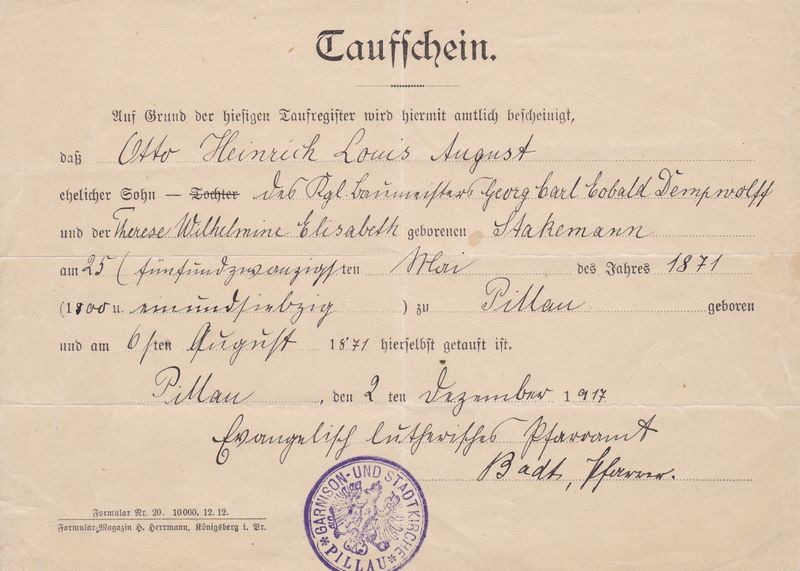 Taufschein.
Auf Grund der hiesigen Taufregister wird hiermit amtlich bescheinigt,
daß Otto Heinrich Louis August
ehelicher Sohn — Tochter des Kgl. Baumeisters Georg Carl Cobald Dempwolff
und der Therese Wilhelmine Elisabeth geborenen Stakemann
am 25 (fünfundzwanzigsten Mai des Jahres 1871
(1800 u. einundsiebzig ) zu Pillau geboren
und am 6sten August 1871 hierselbst getauft ist.
Pillau, den 2 ten Dezember 1917
Evangelisch lutherisches Pfarramt
Badt, Pfarrer.
GARNISON- UND STADTKIRCHE
* PILLAU *
Formular Nr. 20. 10000, 12. 12.
Formular-Magazin H. Herrmann, Königsberg i. Pr.